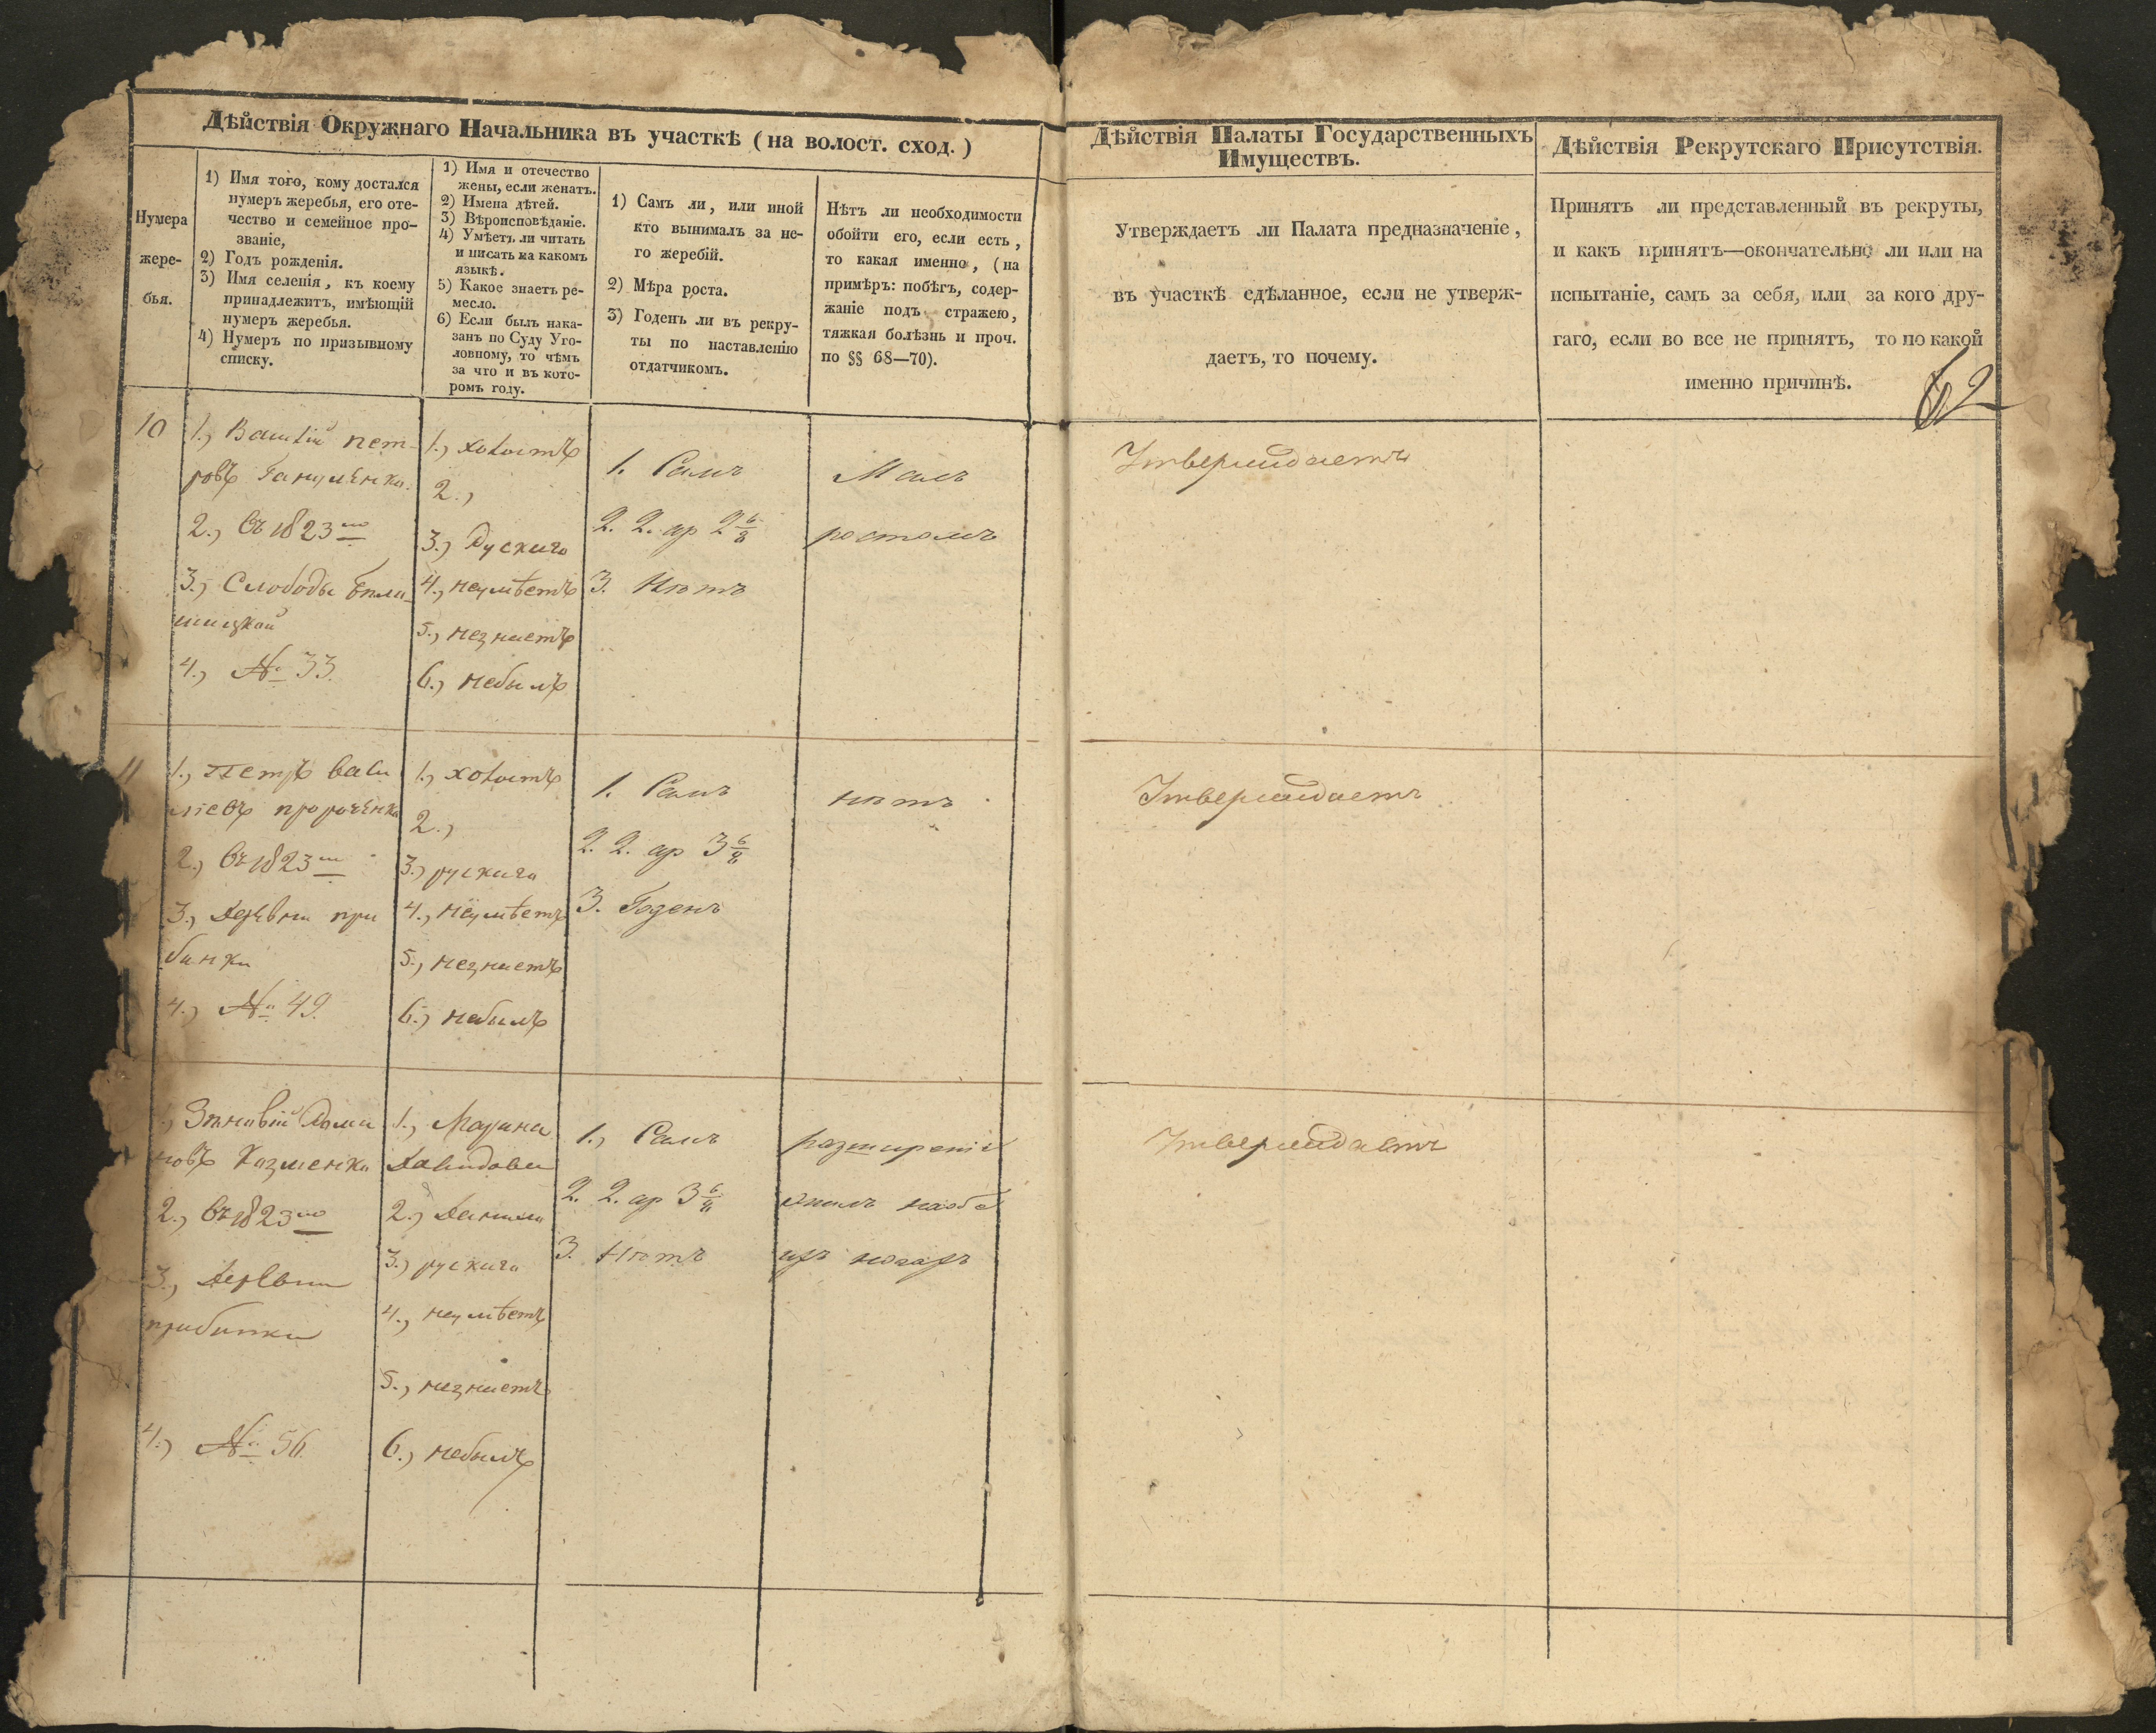 Дѣйствія Окружнаго Начальника въ участкѣ (на волост. сход.)
Нумера
жере-
бья.
1) Имя того, кому достался
нумеръ жеребья, его оте-
чество и семейное про-
званіе,
2) Годъ рожденія.
3) Имя селенія, къ коему
принадлежитъ, имѣющій
нумеръ жеребья.
4) Нумеръ по призывному
списку.
1) Имя и отечество
жены, если женатъ.
2) Имена дѣтей.
3) Вѣроисповѣданіе.
4) Умѣетъ ли читать
и писать на какомъ
языкѣ.
5) Какое знаетъ ре-
месло.
6) Если былъ нака-
занъ по Суду Уго-
ловному, то чѣмъ
за что и въ кото-
ромъ году.
1) Самъ ли, или иной
кто вынималъ за не-
го жеребій.
2) Мѣра роста.
3) Годенъ ли въ рекру-
ты по наставленію
отдатчикомъ.
Нѣтъ ли необходимости
обойти его, если есть,
то какая именно, (на
примѣръ: побѣгъ, содер-
жаніе подъ стражею,
тяжкая болѣзнь и проч.
по §§ 68—70).
Дѣйствія Палаты Государственныхъ
Имуществъ.
Утверждаетъ ли Палата предназначеніе,
въ участкѣ сдѣланное, если не утверж-
даетъ, то почему.
Дѣйствія Рекрутскаго Присутствія.
Принятъ ли представленный въ рекруты,
и какъ принятъ—окончательно ли или на
испытаніе, самъ за себя, или за кого дру-
гаго, если во все не принятъ, то по какой
именно причинѣ.
62
10
1., Василій пет-
ровъ
2., Съ 1823го
3., Слободы
4., № 33.
1., холостъ
2.,
3., Рускаго
4., неумѣетъ
5., незнаетъ
6., небылъ
1. Самъ
2. 2. ар 2 6/8
3. Нѣтъ
Малъ
ростомъ
Утверждаетъ
11
1., Петръ васи
лієвъ
2., Съ 1823го
3., Деревни при
бинки
4., № 49.
1., холостъ
2.,
3., рускаго
4., неумѣетъ
5., незнаетъ
6., небылъ
1. Самъ
2. 2. ар 3 6/8
3. Годенъ
нѣтъ
Утверждаетъ
1., Зѣновій Дома
новъ Казменко
2., Съ 1823го
3., Деревни
прибинки
4., № 56.
1., Марина
Давидова
2., Данило
3., рускаго
4., неумѣетъ
5., незнаетъ
6., небылъ
1., Самъ
2. 2. ар 3 6/8
3. Нѣтъ
жилъ
ногахъ
Утверждаетъ